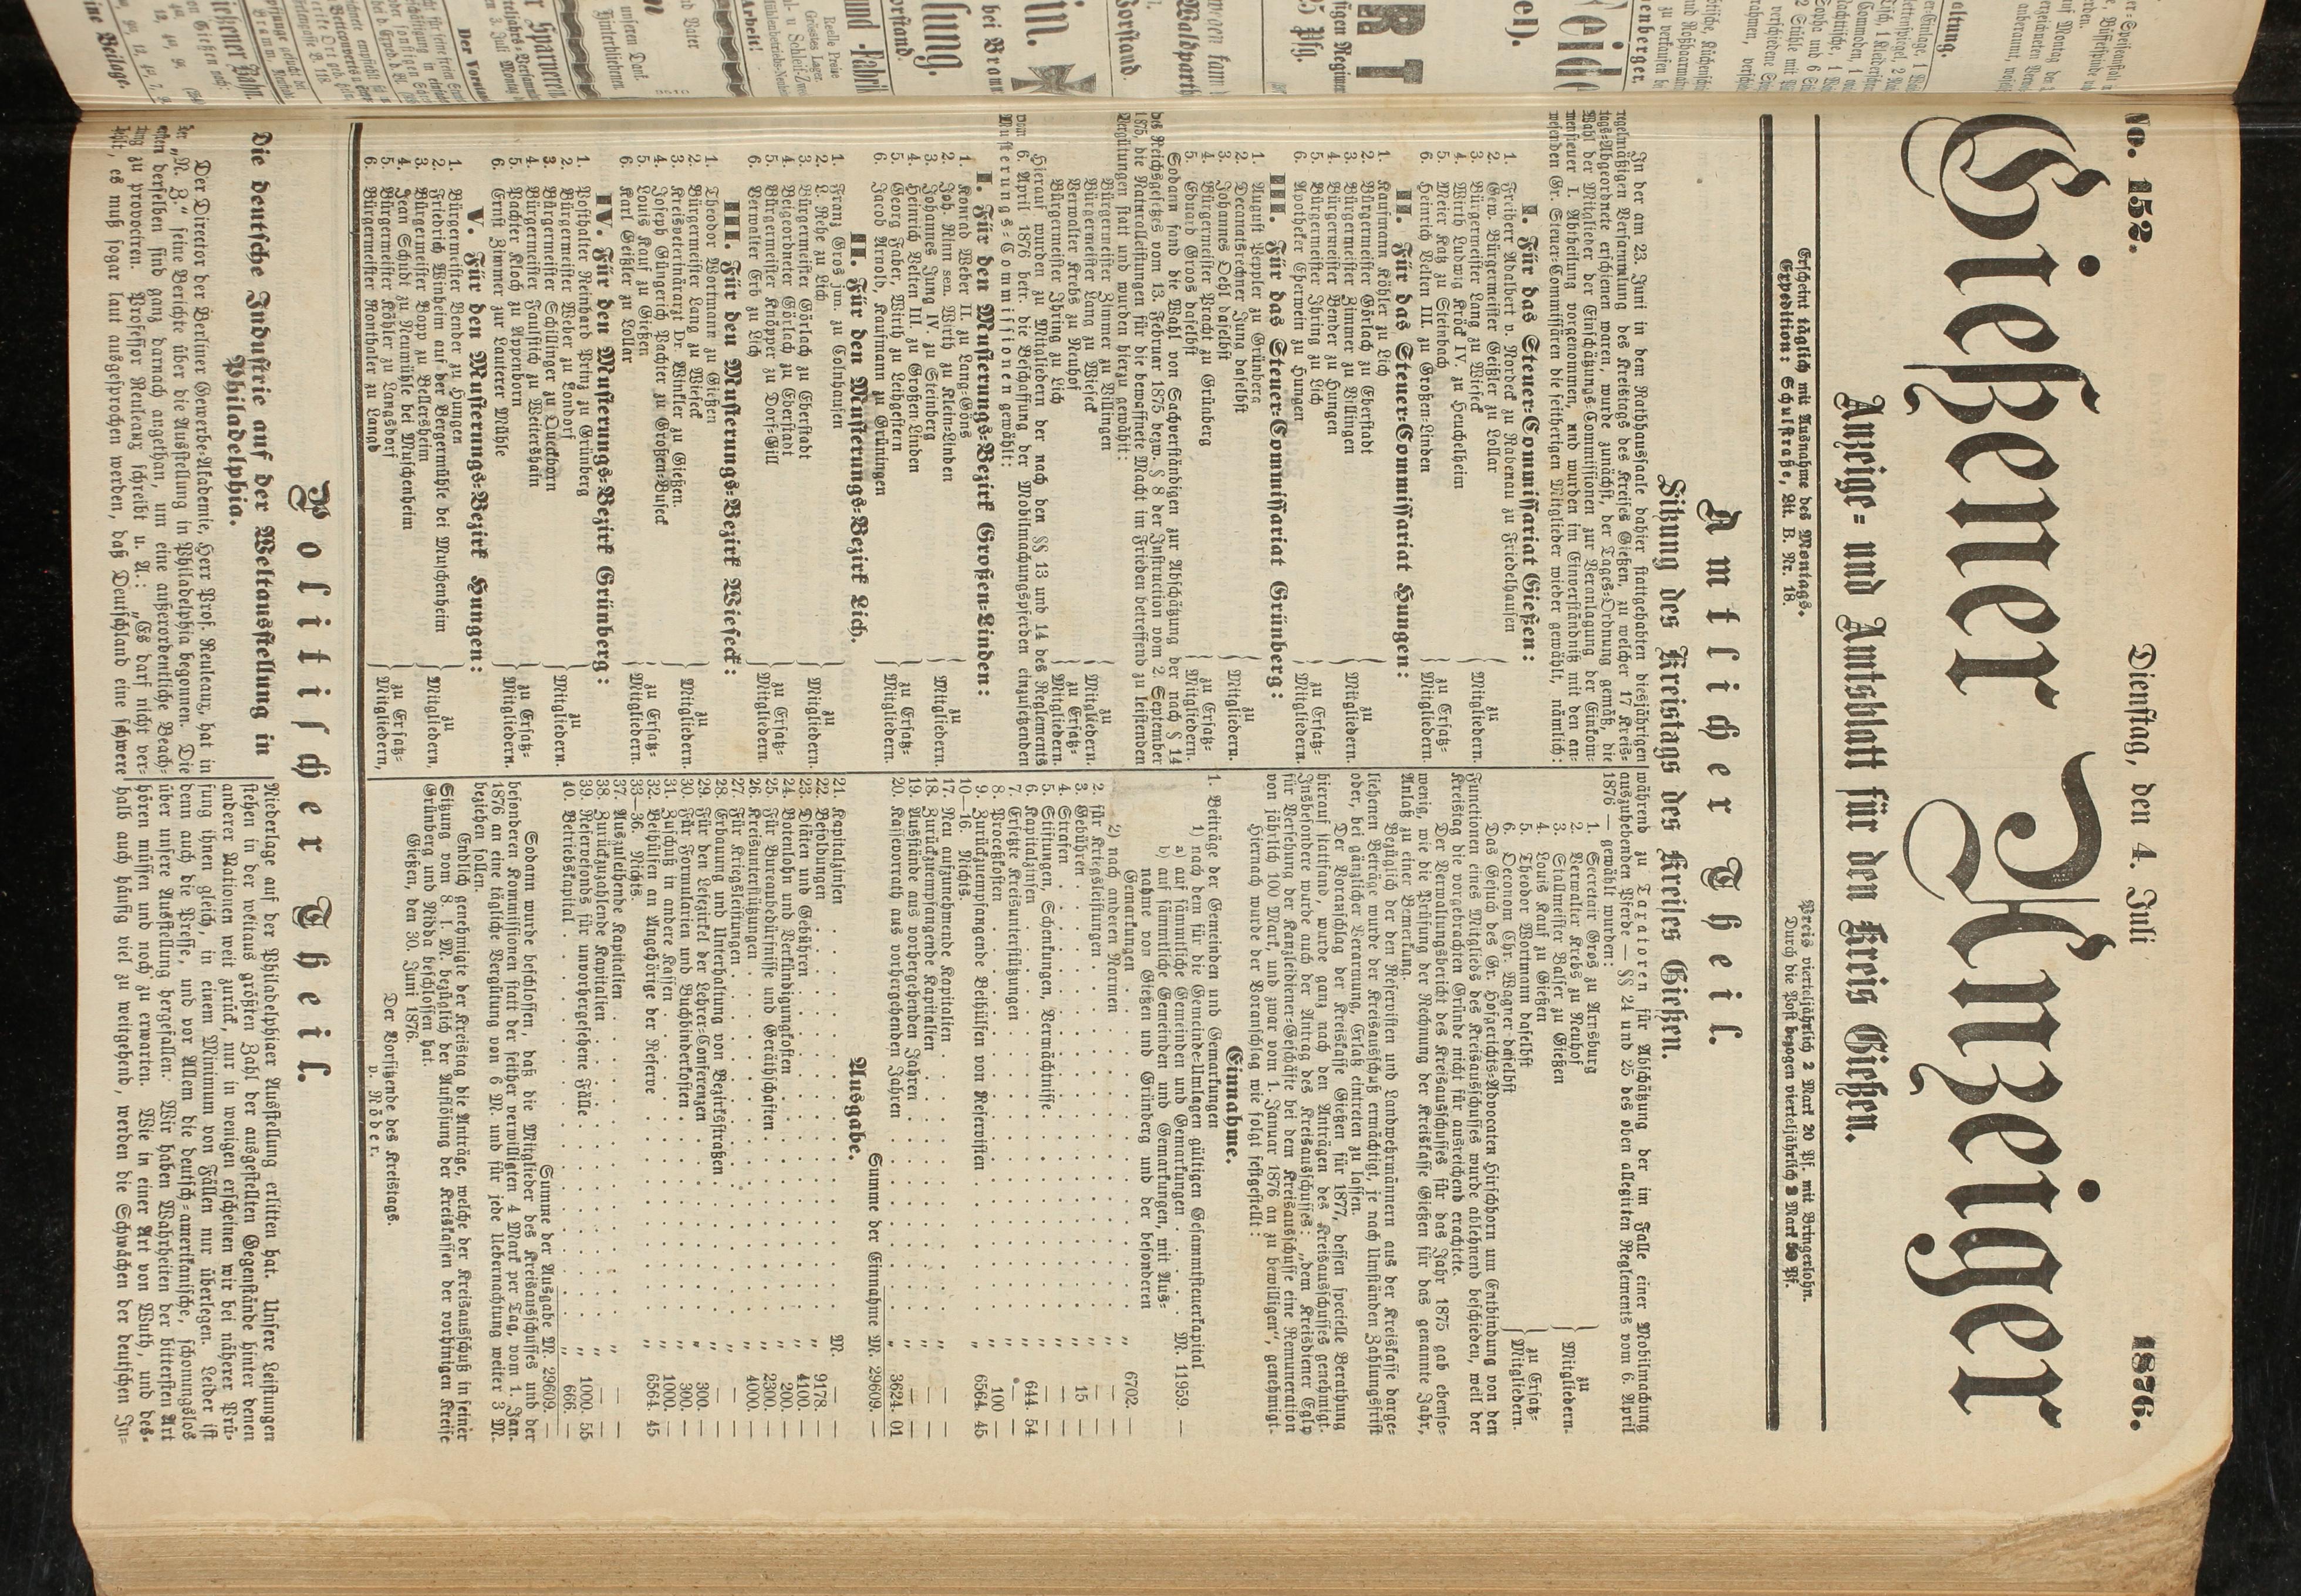 No. 152.
Dienstag, den 4. Juli
1876.
Gießener Anzeiger
Anzeige- und Amtsblatt für den Kreis Gießen.
Erscheint täglich mit Ausnahme des Montags.
Expedition: Schulstraße, Lit. B. Nr. 18.
Preis vierteljährlich 2 Mark 20 Pf. mit Bringerlohn.
Durch die Post bezogen vierteljährlich 2 Mark 50 Pf.
Amtlicher Theil.
Sitzung des Kreistags des Kreises Gießen.
In der am 23. Juni in dem Rathhaussaale dahier stattgehabten diesjährigen
regelmäßigen Versammlung des Kreistags des Kreises Gießen, zu welcher 17 Kreis-
tags-Abgeordnete erschienen waren, wurde zunächst, der Tages-Ordnung gemäß, die
Wahl der Mitglieder der Einschätzungs-Commissionen zur Veranlagung der Einkom-
mensteuer I. Abtheilung vorgenommen, und wurden im Einverständniß mit den an-
wesenden Gr. Steuer-Commissären die seitherigen Mitglieder wieder gewählt, nämlich:
I. Für das Steuer-Commissariat Gießen:
1. Freiherr Adalbert v. Nordeck zu Rabenau zu Friedelhausen
2. Gew. Bürgermeister Geißler zu Lollar
3. Bürgermeister Lang zu Wieseck
zu Mitgliedern.
4. Wirth Ludwig Kröck IV. zu Heuchelheim
5. Meier Katz zu Steinbach
6. Heinrich Velten III. zu Großen-Linden
zu Ersatz-Mitgliedern.
II. Für das Steuer-Commissariat Hungen:
1. Kaufmann Köhler zu Lich
2. Bürgermeister Görlach zu Eberstadt
3. Bürgermeister Zimmer zu Billingen
zu Mitgliedern.
4. Bürgermeister Bender zu Hungen
5. Bürgermeister Ihring zu Lich
6. Apotheker Eberwein zu Hungen
zu Ersatz-Mitgliedern.
III. Für das Steuer-Commissariat Grünberg:
1. August Keppler zu Grünberg
2. Decanatsrechner Jung daselbst
3. Johannes Oehl daselbst
zu Mitgliedern.
4. Bürgermeister Pracht zu Grünberg
5. Eduard Groos daselbst
zu Ersatz-Mitgliedern.
Sodann fand die Wahl von Sachverständigen zur Abschätzung der nach § 14
des Reichsgesetzes vom 13. Februar 1875 bezw. § 8 der Instruction vom 2. September
1875, die Naturalleistungen für die bewaffnete Macht im Frieden betreffend zu leistenden
Vergütungen statt und wurden hierzu gewählt:
Bürgermeister Zimmer zu Billingen
Bürgermeister Lang zu Wieseck
zu Mitgliedern.
Verwalter Krebs zu Neuhof
Bürgermeister Ihring zu Lich
zu Ersatz-Mitgliedern.
Hierauf wurden zu Mitgliedern der nach den §§ 13 und 14 des Reglements
vom 6. April 1876 betr. die Beschaffung der Mobilmachungspferden einzusetzenden
Musterungs-Commissionen gewählt:
I. Für den Musterungs-Bezirk Großen-Linden:
1. Konrad Weber II. zu Lang-Göns
2. Joh. Alnn sen. Wirth zu Klein-Linden
3. Johannes Jung IV. zu Steinberg
zu Mitgliedern.
4. Heinrich Velten III. zu Großen-Linden
5. Georg Faber, Wirth zu Leihgestern
6. Jacob Arnold, Kaufmann zu Grüningen
zu Ersatz-Mitgliedern.
II. Für den Musterungs-Bezirk Lich.
1. Franz Gros jun. zu Cölnhausen
2. L. Rehe zu Lich
3. Bürgermeister Görlach zu Eberstadt
zu Mitgliedern.
4. Beigeordneter Görlach zu Eberstadt
5. Bürgermeister Knöpper zu Dorf-Gill
6. Verwalter Erb zu Lich
zu Ersatz-Mitgliedern.
III. Für den Musterungs-Bezirk Wieseck:
1. Theodor Wortmann zu Gießen
2. Bürgermeister Lang zu Wieseck
3. Kreisveterinärarzt Dr. Winkler zu Gießen.
zu Mitgliedern.
4. Joseph Güngerich Pachter zu Großen-Buseck
5. Louis Kauf zu Gießen
6. Karl Geißler zu Lollar
zu Ersatz-Mitgliedern.
IV. Für den Musterungs-Bezirk Grünberg:
1. Posthalter Reinhard Pring zu Grünberg
2. Bürgermeister Weber zu Londorf
3. Bürgermeister Schillinger zu Queckborn
zu Mitgliedern.
4. Bürgermeister Faulstich zu Weitershain
5. Pachter Kloch zu Appenborn
6. Ernst Zimmer zur Lauterer Mühle
zu Ersatz-Mitgliedern.
V. Für den Musterungs-Bezirk Hungen:
1. Bürgermeister Bender zu Hungen
2. Friedrich Winheim auf der Bergermühle bei Muschenheim
3. Bürgermeister Bopp zu Bellersheim
zu Mitgliedern,
4. Jean Schudt zu Neumühle bei Muschenheim
5. Bürgermeister Köhler zu Langsdorf
6. Bürgermeister Konthaler zu Langd
zu Ersatz-Mitgliedern,
während zu Taxatoren für Abschätzung der im Falle einer Mobilmachung
auszuhebenden Pferde — §§ 24 und 25 des oben allegirten Reglements vom 6. April
1876 — gewählt wurden:
1. Secretair Gros zu Arnsburg
2. Verwalter Krebs zu Neuhof
3. Stallmeister Balser zu Gießen
zu Mitgliedern.
4. Louis Kauf zu Gießen
5. Theodor Wortmann daselbst
6. Oeconom Chr. Wagner daselbst
zu Ersatz-Mitgliedern.
Das Gesuch des Gr. Hofgerichts-Advocaten Hirschhorn um Entbindung von den
Functionen eines Mitglieds des Kreisausschusses wurde ablehnend beschieden, weil der
Kreistag die vorgebrachten Gründe nicht für ausreichend erachtete.
Der Verwaltungsbericht des Kreisausschusses für das Jahr 1875 gab ebenso-
wenig, wie die Prüfung der Rechnung der Kreiskasse Gießen für das genannte Jahr,
Anlaß zu einer Bemerkung.
Bezüglich der den Reservisten und Landwehrmännern aus der Kreiskasse darge-
liehenen Beträge wurde der Kreisausschuß ermächtigt, je nach Umständen Zahlungsfrist
oder, bei gänzlicher Verarmung, Erlaß eintreten zu lassen.
Der Voranschlag der Kreiskasse Gießen für 1877, dessen specielle Berathung
hierauf stattfand, wurde ganz nach den Anträgen des Kreisausschusses genehmigt.
Insbesondere wurde auch der Antrag des Kreisausschusses: „dem Kreisdiener Egly
für Versehung der Kanzleidiener-Geschäfte bei dem Kreisausschusse eine Remuneration
von jährlich 100 Mark, und zwar vom 1. Januar 1876 an zu bewilligen“, genehmigt.
Hiernach wurde der Voranschlag wie folgt festgestellt:
Einnahme.
1. Beiträge der Gemeinden und Gemarkungen
1) nach dem für die Gemeinde-Umlagen gültigen Gesammtsteuerkapital
a) auf sämmtliche Gemeinden und Gemarkungen . . . . M. 11959. —
b) auf sämmtliche Gemeinden und Gemarkungen, mit Aus-
nahme von Gießen und Grünberg und der besonderen
Gemarkungen . . . . „ 6702. —
2) nach anderen Normen . . . . „ —
2. für Kriegsleistungen . . . . „ —
3. Gebühren . . . . „ 15 —
4. Strafen . . . . „ —
5. Stiftungen, Schenkungen, Vermächtnisse . . . . „ —
6. Kapitalzinsen . . . . „ 644. 54
7. Ersetzte Kreisunterstützungen . . . . „ —
8. Proceßkosten . . . . „ 100 —
9. Zurückzuempfangende Beihülfen von Reservisten . . . . „ 6564. 45
10—16. Nichts.
17. Neu aufzunehmende Kapitalien . . . . „ —
18. Zurückzuempfangende Kapitalien . . . . „ —
19. Ausstände aus vorhergehenden Jahren . . . . „ —
20. Kassevorrath aus vorhergehenden Jahren . . . . „ 3624. 01
Summe der Einnahme M. 29609. —
Ausgabe.
21. Kapitalzinsen . . . . M. —
22. Besoldungen . . . . „ 9178. —
23. Diäten und Gebühren . . . . „ 4100. —
24. Botenlohn und Verkündigungskosten . . . . „ 200. —
25. Für Bureaubedürfnisse und Geräthschaften . . . . „ 2300. —
26. Kreisunterstützungen . . . . „ 4000. —
27. Für Kriegsleistungen . . . . „ —
28. Erbauung und Unterhaltung von Bezirksstraßen . . . . „ —
29. Für den Lesezirkel der Lehrer-Conferenzen . . . . „ 300. —
30. Für Formularien und Buchbinderkosten . . . . „ 300. —
31. Zuschuß in andere Kassen . . . . „ 1000. —
32. Beihülfen an Angehörige der Reserve . . . . „ 6564. 45
33—36. Nichts.
37. Auszuleihende Kapitalien . . . . „ —
38. Zurückzuzahlende Kapitalien . . . . „ —
39. Reservefonds für unvorhergesehene Fälle . . . . „ 1000. 55
40. Betriebskapital . . . . „ 666. —
Summe der Ausgabe M. 29609. —
Sodann wurde beschlossen, daß die Mitglieder des Kreisausschusses und der
besonderen Kommissionen statt der seither verwilligten 4 Mark per Tag, vom 1. Jan.
1876 an eine tägliche Vergütung von 6 M. und für jede Uebernachtung weiter 3 M.
beziehen sollen.
Endlich genehmigte der Kreistag die Anträge, welche der Kreisausschuß in seiner
Sitzung vom 8. l. M. bezüglich der Auflösung der Kreiskassen der vorhinigen Kreise
Grünberg und Nidda beschlossen hat.
Gießen, den 30. Juni 1876.
Der Vorsitzende des Kreistags.
v. Röder.
Politischer Theil.
Die deutsche Industrie auf der Weltausstellung in
Philadelphia.
Der Director der Berliner Gewerbe-Akademie, Herr Prof. Reuleaux, hat in
der „N. Z.“ seine Berichte über die Ausstellung in Philadelphia begonnen. Die
ersten derselben sind ganz darnach angethan, um eine außerordentliche Beach-
tung zu provociren. Professor Reuleaux schreibt u. A.: „Es darf nicht ver-
hehlt, es muß sogar laut ausgesprochen werden, daß Deutschland eine schwere
Niederlage auf der Philadelphiaer Ausstellung erlitten hat. Unsere Leistungen
stehen in der weitaus größten Zahl der ausgestellten Gegenstände hinter denen
anderer Nationen weit zurück, nur in wenigen erscheinen wir bei näherer Prü-
fung ihnen gleich, in einem Minimum von Fällen nur überlegen. Leider ist
denn auch die Presse, und vor Allem die deutsch-amerikanische, schonungslos
über unsere Ausstellung hergefallen. Wir haben Wahrheiten der bittersten Art
hören müssen und noch zu erwarten. Wie in einer Art von Wuth, und des-
halb auch häufig viel zu weitgehend, werden die Schwächen der deutschen In-